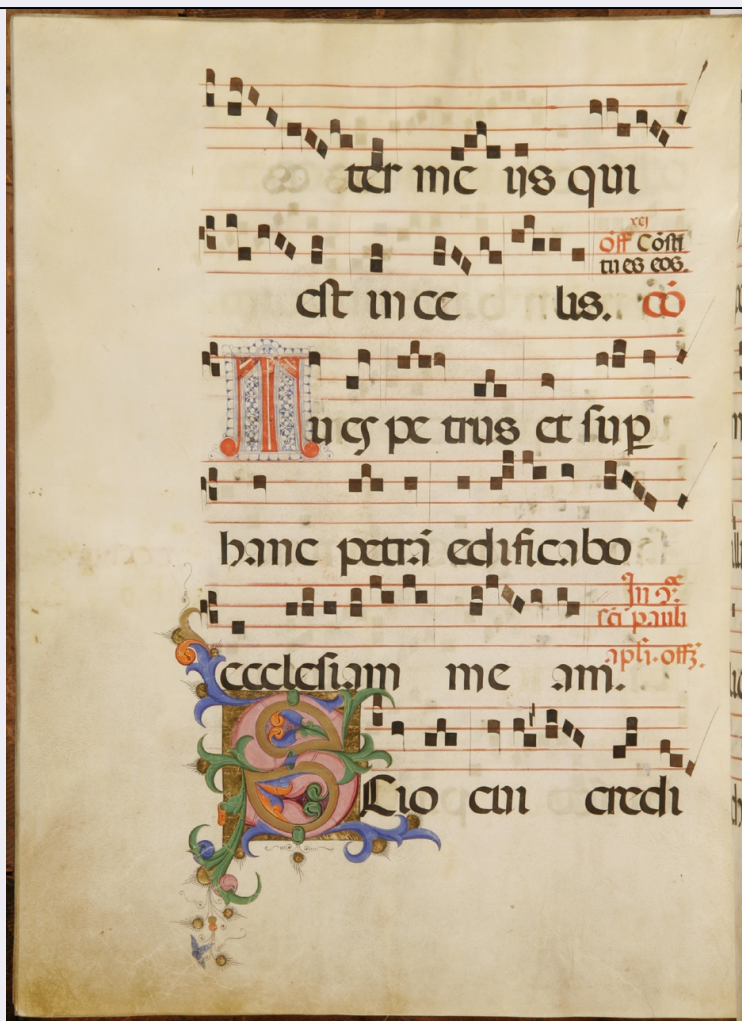 ter me us qui
xcj
off Cōsti
tu es eos.
est in ce lis. cō
Tu es pe trus et sup
hanc petrā edificabo
In ꝯ
sci pauli
apli. off.
eccclesiam me am.
Scio cui credi